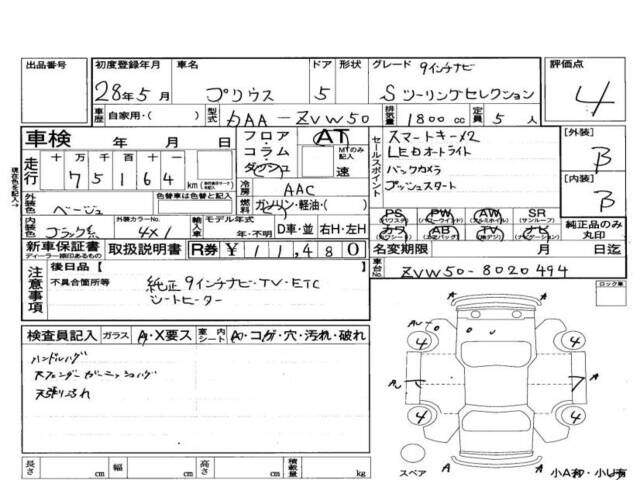 出品番号
初度登録年月
28年5月
車名
プリウス
ドア
5
形状
グレード 9インチナビ
Sツーリングセレクション
評価点
4
車歴 自家用・( )
型式 DAA-ZVW50
排気量 1800cc
定員 5人
車検 年 月 日
フロア
コラム
ダッシュ
AT
MTのみ記入
速
セールスポイント
スマートキー×2
LEDオートライト
バックカメラ
プッシュスタート
[外装]
B
[内装]
B
現在色を記入→
走行
十 万 千 百 十 一
75164
km
冷房 AAC
燃料 ガソリン・軽油・( )
外装色 ベージュ
色替車は色替と記入
内装色 ブラック系
外装カラーNo. 4X1
輸入車 モデル年式
年・不明
D車・並 右H・左H
PS (パワステ)
PW (パワーウインド)
AW (アルミホイル)
SR (サンルーフ)
カワ (カワシート)
AB (エアバッグ)
TV (地デジ)
ナビ (ナビゲーション)
純正品のみ丸印
新車保証書
ディーラー捺印あるもの
取扱説明書
R券 ¥11,480
名変期限 月 日迄
車台No. ZVW50-8020494
注意事項
後日品【 】
不具合箇所等
純正9インチナビ・TV・ETC
シートヒーター
ロック車
検査員記入 ガラス A・X要ス
室内シート A・コゲ・穴・汚れ・破れ
ハンドルハゲ
天張り汚れ
AU
4
4
A
A
4
4
A
スペア
小A有・小U有
長さ cm
幅 cm
高さ cm
積載量 kg